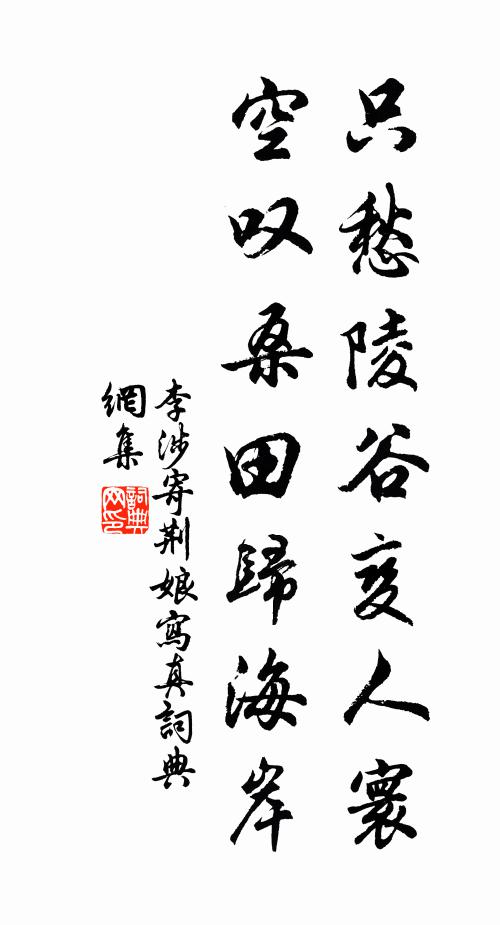 只愁陵谷变人寰
空叹桑田歸海岸
李涉寄荆娘寫真詞典
網集
詞典
网印